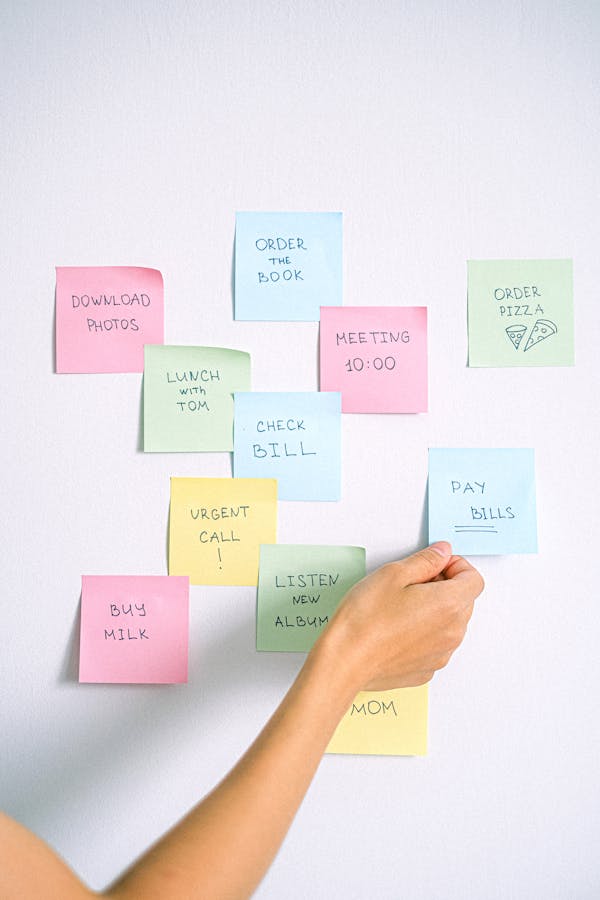 ORDER
THE
BOOK
DOWNLOAD
PHOTOS
ORDER
PIZZA
MEETING
10:00
LUNCH
WITH
TOM
CHECK
BILL
PAY
BILLS
URGENT
CALL
!
LISTEN
NEW
ALBUM
BUY
MILK
MOM